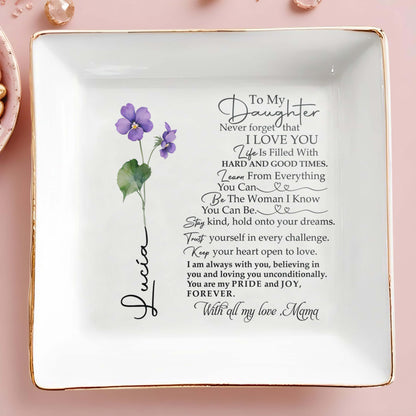 Lucía
To My
Daughter
Never forget that
I LOVE YOU
Life Is Filled With
HARD AND GOOD TIMES.
Learn From Everything
You Can
Be The Woman I Know
You Can Be.
Stay kind, hold onto your dreams.
Trust yourself in every challenge.
Keep your heart open to love.
I am always with you, believing in
you and loving you unconditionally.
You are my PRIDE and JOY,
FOREVER.
With all my love ,Mama